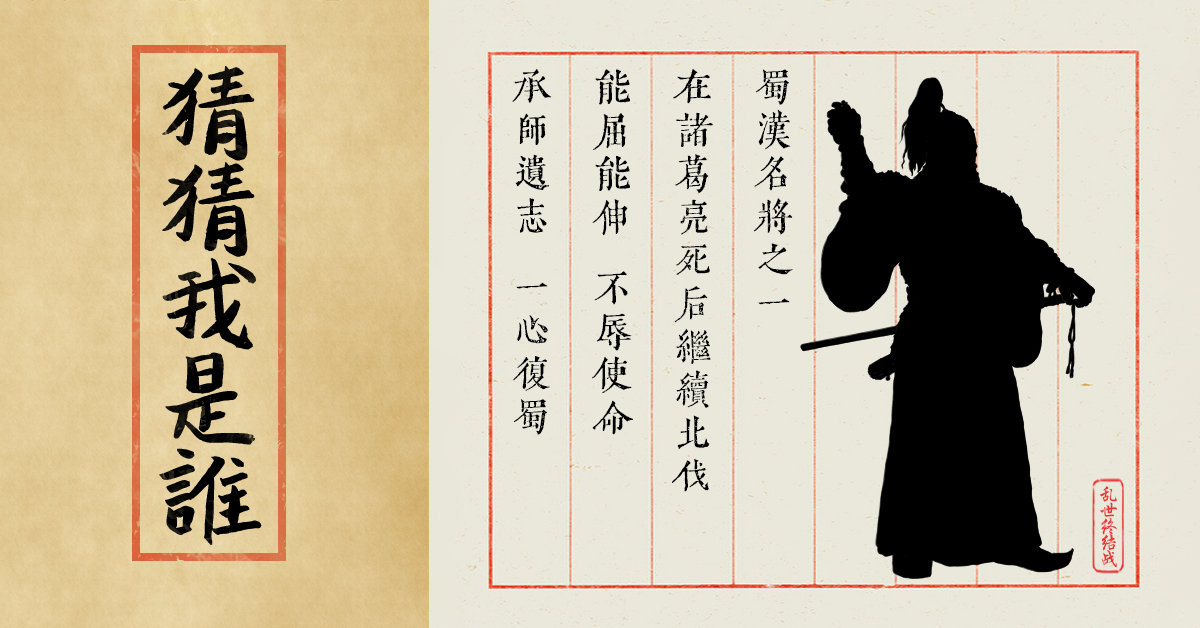 猜猜我是誰
蜀漢名將之一
在諸葛亮死后繼續北伐
能屈能伸 不辱使命
承師遺志 一心復蜀
乱世终结战